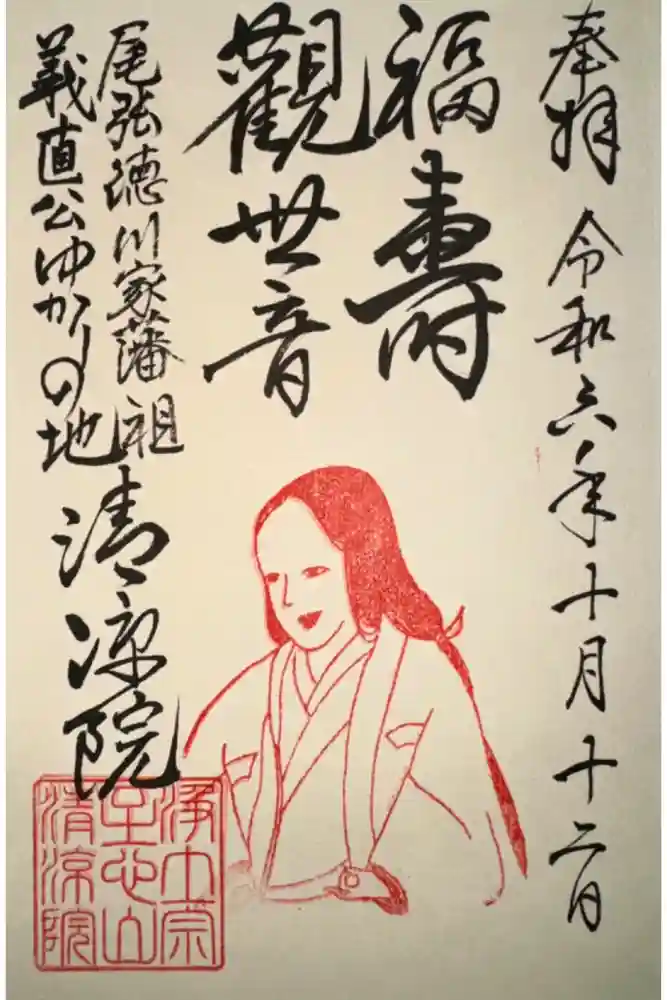 奉拝 令和六年十月十二日
福壽
觀世音
尾張徳川家藩祖
義直公ゆかりの地
清凉院
浄土宗
至心山
清涼院